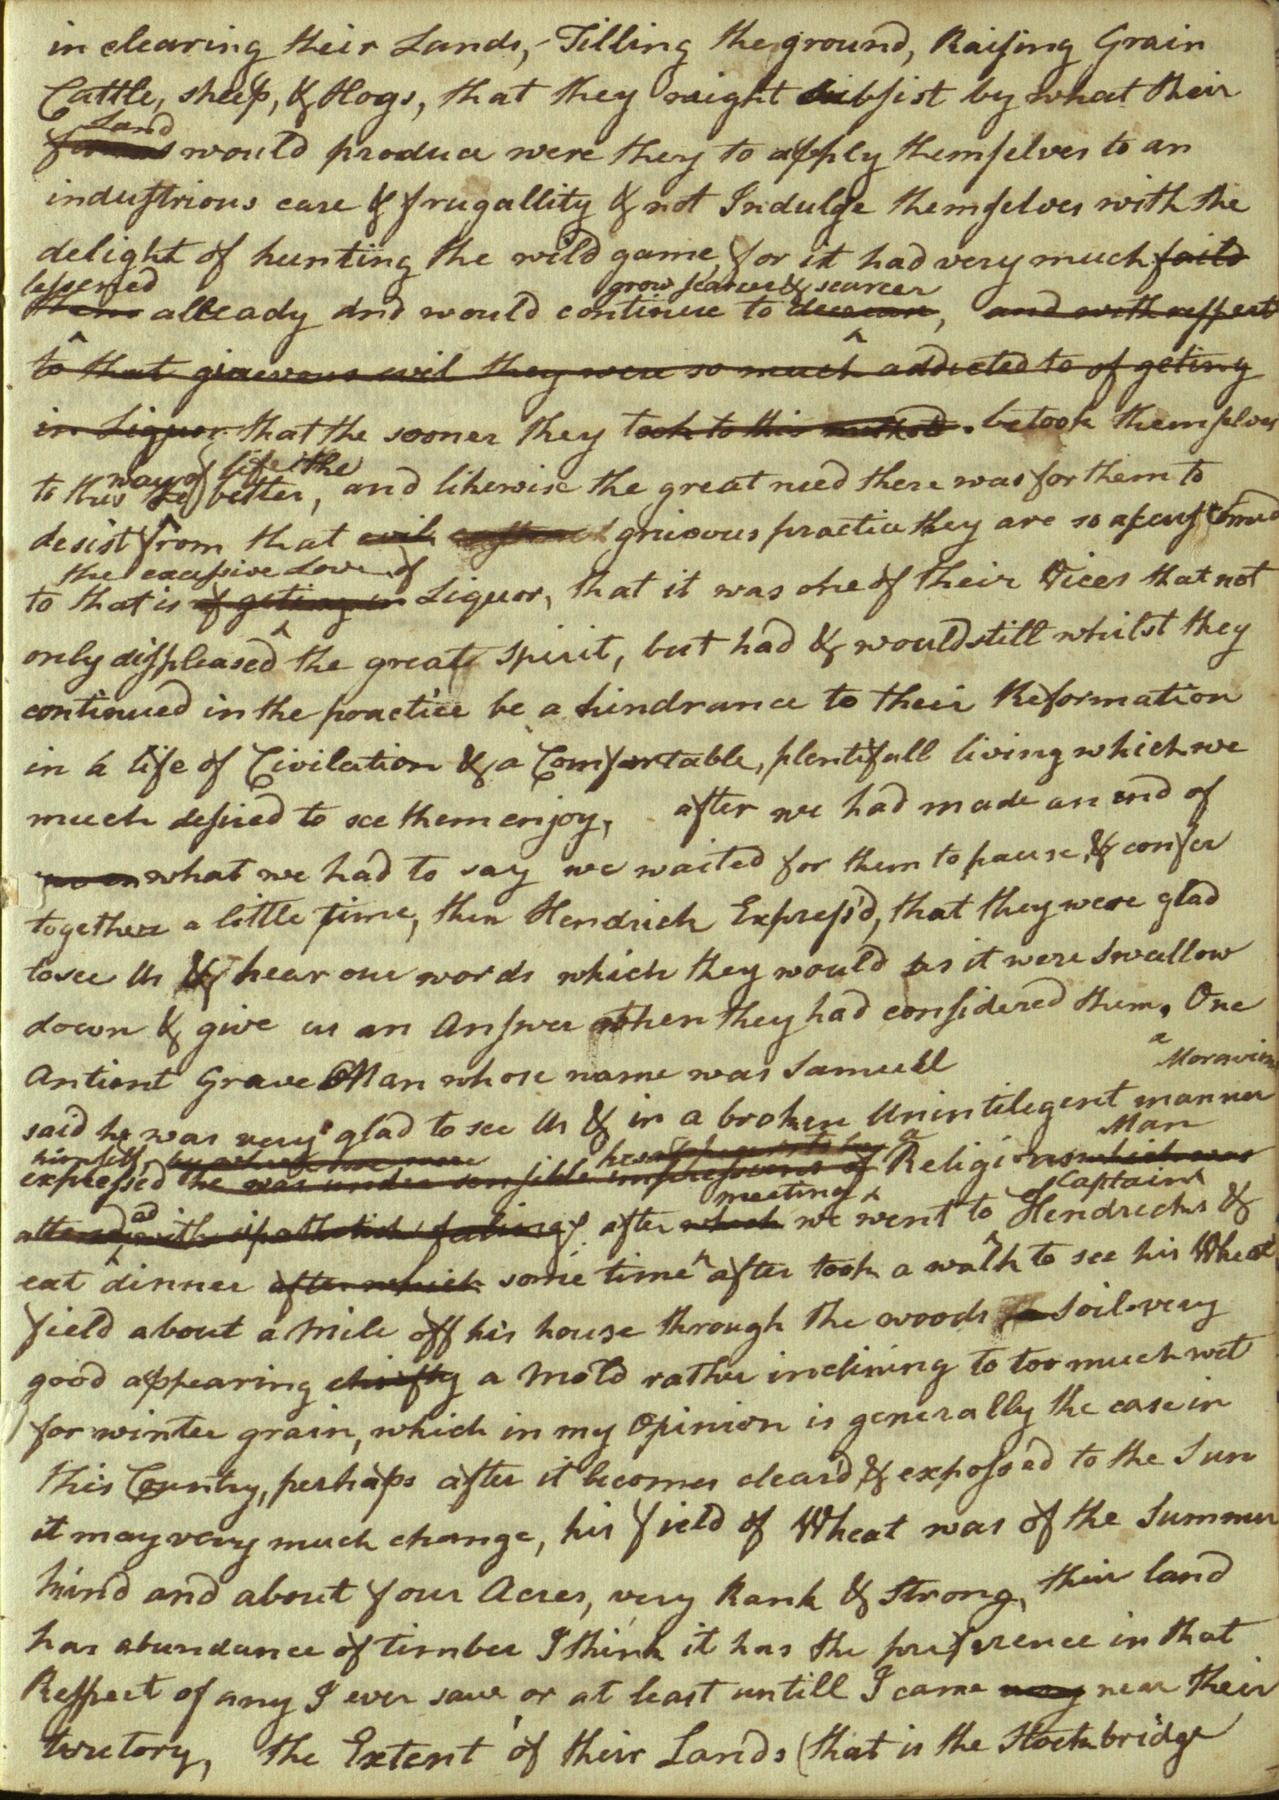 in clearing their Lands, - Tilling the ground, Raising Grain
Cattle, sheep, & Hogs, that they might subsist by what their
Land
farms would produce were they to apply themselves to an
industrious care & frugallity & not Indulge themselves with the
delight of hunting the wild game, for it had very much faild
lessened grow scarcer & scarcer
them allready and would continue to decrease, and with respect
to that grievous evil they were so much addicted to of geting
in Liquor that the sooner they took to this method betook themselves
way of life the
to this the better, and likewise the great need there was for them to
desist from that evil custom grievous practice they are so accustomed
the excessive Love of
to that is of geting in Liquor, that it was one of their Vices that not
only displeased the great spirit, but had & would still whilst they
continued in the practice be a hindrance to their Reformation
in a life of Civilation & a Comfortable, plentifull living which we
much desired to see them enjoy, after we had made an end of
what we had to say we waited for them to pause, & confer
together a little time, then Hendrick Express'd, that they were glad
to see Us & hear our words which they would as it were swallow
down & give us an Answer when they had considered them. One
Antient Grave Man whose name was Samuell
a Moravian
said he was very glad to see Us & in a broken Unintelegent manner
himself, by which we were he appears to be a Man
expressed he was under sensible impressions of Religion which was
meeting Captain
attended with a pathetick feeling after which we went to Hendricks &
eat dinner after which some time after took a walk to see his Wheat
field about a Mile off his house through the woods soil very
good appearing chiefly a Mold rather inclining to too much wet
for winter grain, which in my Opinion is generally the case in
this Country, perhaps after it becomes cleard & exposed to the Sun
it may very much change, his field of Wheat was of the Summer
kind and about four Acres, very Rank & Strong, their land
has abundance of timber I think it has the preference in that
Respect of any I ever saw or at least untill I came near their
teretory, the Extent of their Lands (that is the Stockbridge